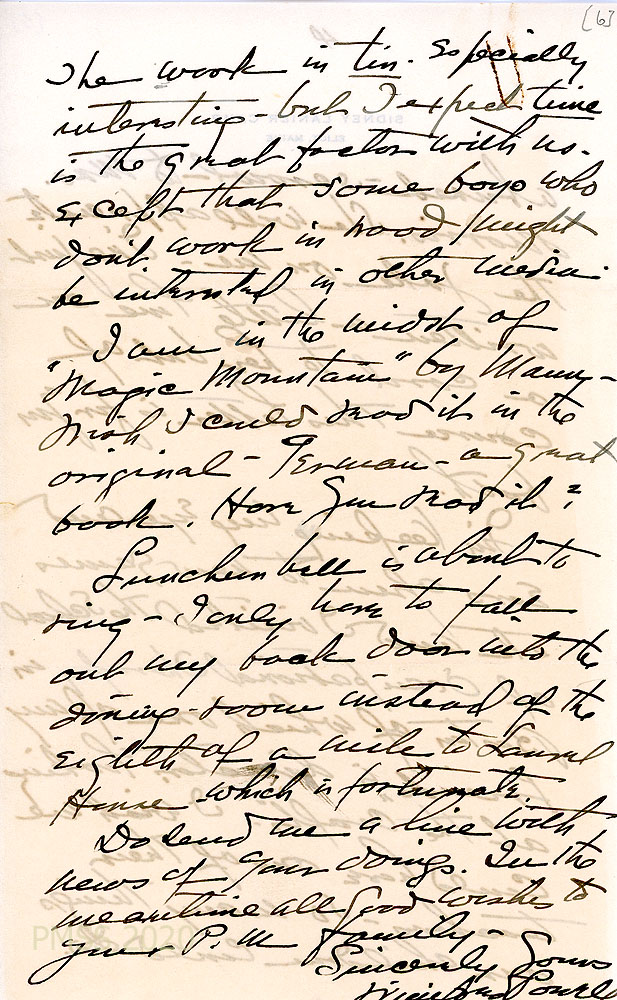 [6]
The work in tin. Especially
interesting - but I expect time
is the great factor with us.
Except that some boys who
don't work in wood might
be interested in other media.
I am in the midst of
"Magic Mountain" by Mann -
Wish I could read it in the
original - German - a great
book. Have you read it?
Luncheon bell is about to
ring - I only have to fall
out my back door into the
dining-room instead of the
eighth of a mile to Laurel
House which is fortunate.
Do send me a line with
news of your doings. In the
meantime all good wishes to
your P.M. family -
Sincerely Yours
PMSS 2020